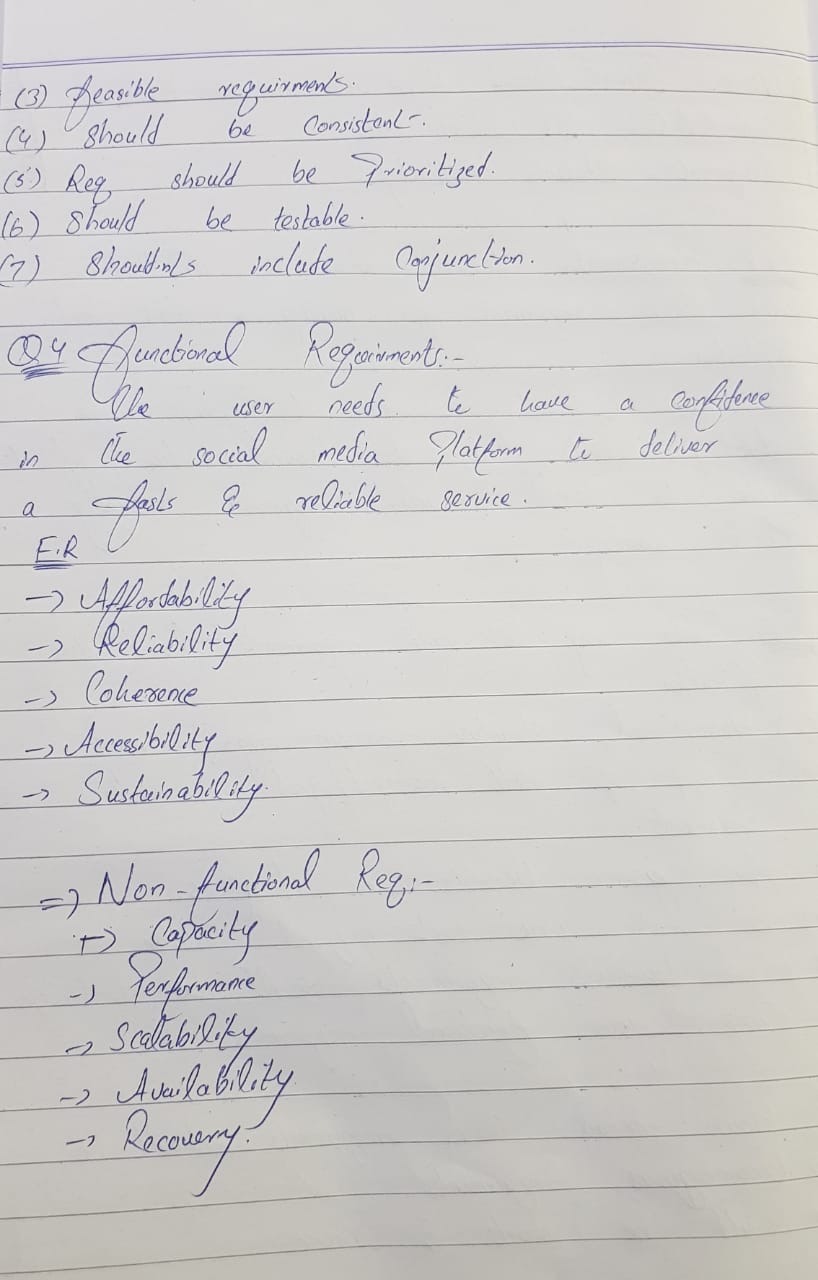 (3) feasible requirments.
(4) Should be Consistent.
(5) Req should be Prioritized.
(6) Should be testable.
(7) Should.nts include Conjunction.
Q4 functional Requirments:-
The user needs to have a confidence
in the social media Platform to deliver
a fasts & reliable service.
F.R
-> Affordability
-> Reliability
-> Coherence
-> Accessibility
-> Sustainability.
=> Non-functional Req:-
-> Capacity
-> Performance
-> Scalability
-> Availability
-> Recovery.